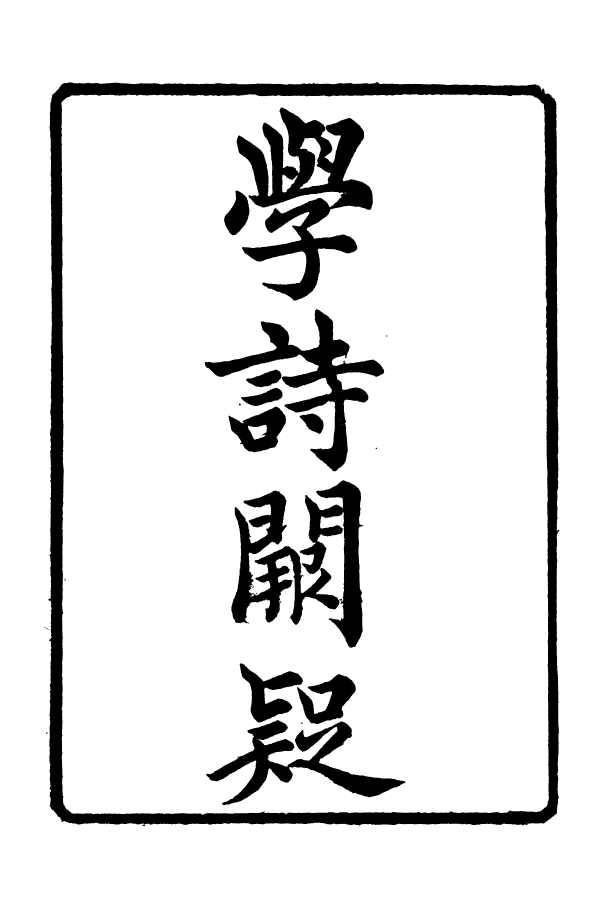 學詩闕疑